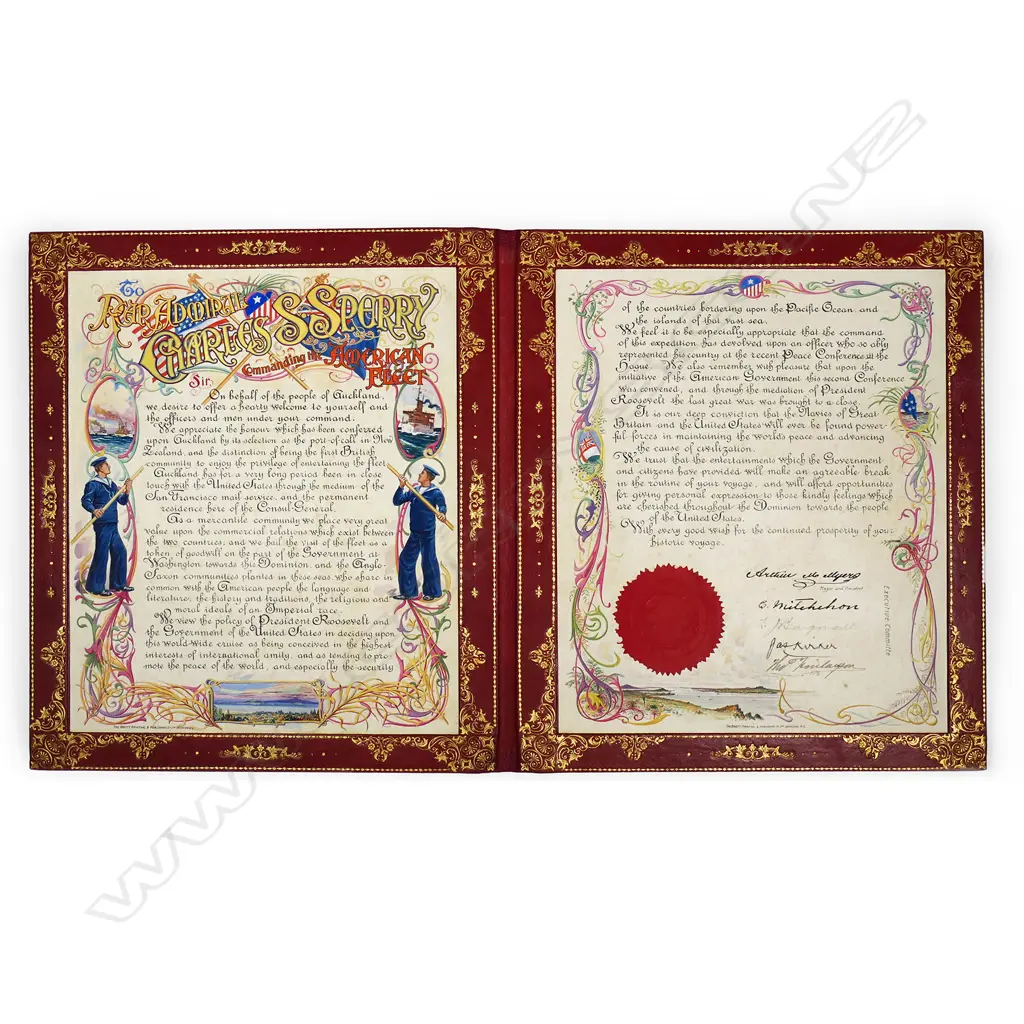 To
Rear Admiral
Charles S. Sperry
Commanding the American
Fleet
Sir,
On behalf of the people of Auckland,
we desire to offer a hearty welcome to yourself and
the officers and men under your command.
We appreciate the honour which has been conferred
upon Auckland by its selection as the port of call in New
Zealand, and the distinction of being the first British
community to enjoy the privilege of entertaining the fleet.
Auckland has for a very long period been in close
touch with the United States through the medium of the
San Francisco mail service, and the permanent
residence here of the Consul-General.
As a mercantile community we place very great
value upon the commercial relations which exist between
the two countries, and we hail the visit of the fleet as a
token of goodwill on the part of the Government at
Washington towards this Dominion, and the Anglo-
Saxon communities planted in these seas, who share in
common with the American people the language and
literature, the history and traditions, the religious and
moral ideals of an Imperial race.
We view the policy of President Roosevelt and
the Government of the United States in deciding upon
this world-wide cruise as being conceived in the highest
interests of international amity, and as tending to pro-
mote the peace of the world, and especially the security
of the countries bordering upon the Pacific Ocean and
the islands of that vast sea.
We feel it to be especially appropriate that the command
of this expedition has devolved upon an officer who so ably
represented his country at the recent Peace Conference at the
Hague. We also remember with pleasure that upon the
initiative of the American Government this second Conference
was convened, and through the mediation of President
Roosevelt the last great war was brought to a close.
It is our deep conviction that the Navies of Great
Britain and the United States will ever be found power-
ful forces in maintaining the world's peace and advancing
the cause of civilization.
We trust that the entertainments which the Government
and citizens have provided will make an agreeable break
in the routine of your voyage, and will afford opportunities
for giving personal expression to those kindly feelings which
are cherished throughout the Dominion towards the people
of the United States.
With every good wish for the continued prosperity of your
historic voyage.
Arthur M. Myers
Mayor and President
Mitchelson
Executive Committe
WWW.
NZ